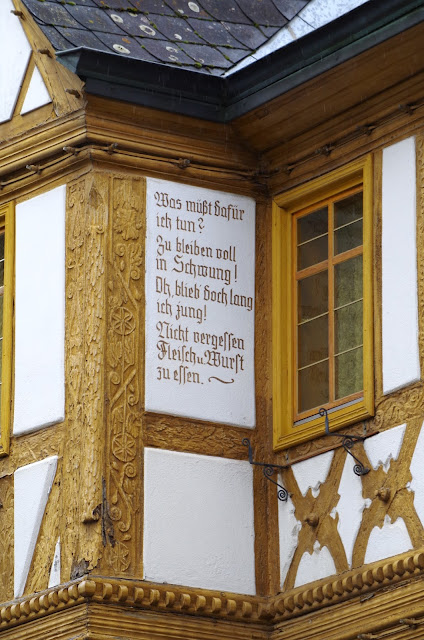 Was müßt dafür
ich tun?
Zu bleiben voll
in Schwung!
Oh, blieb doch lang
ich jung!
Nicht vergessen
Fleisch u. Wurst
zu essen.